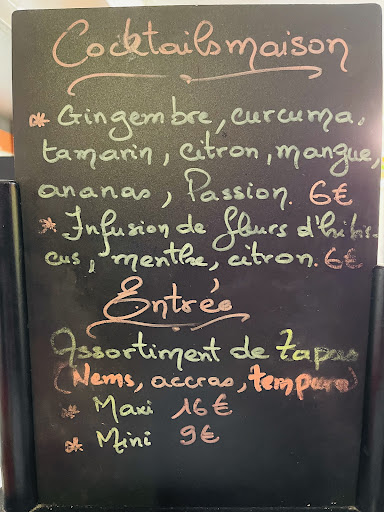 Cocktails maison
* Gingembre, curcuma,
tamarin, citron, mangue,
ananas, Passion. 6€
* Infusion de fleurs d'hibis-
cus, menthe, citron. 6€
Entrée
Assortiment de tapas
(Nems, accras, tempura)
* Maxi 16€
* Mini 9€